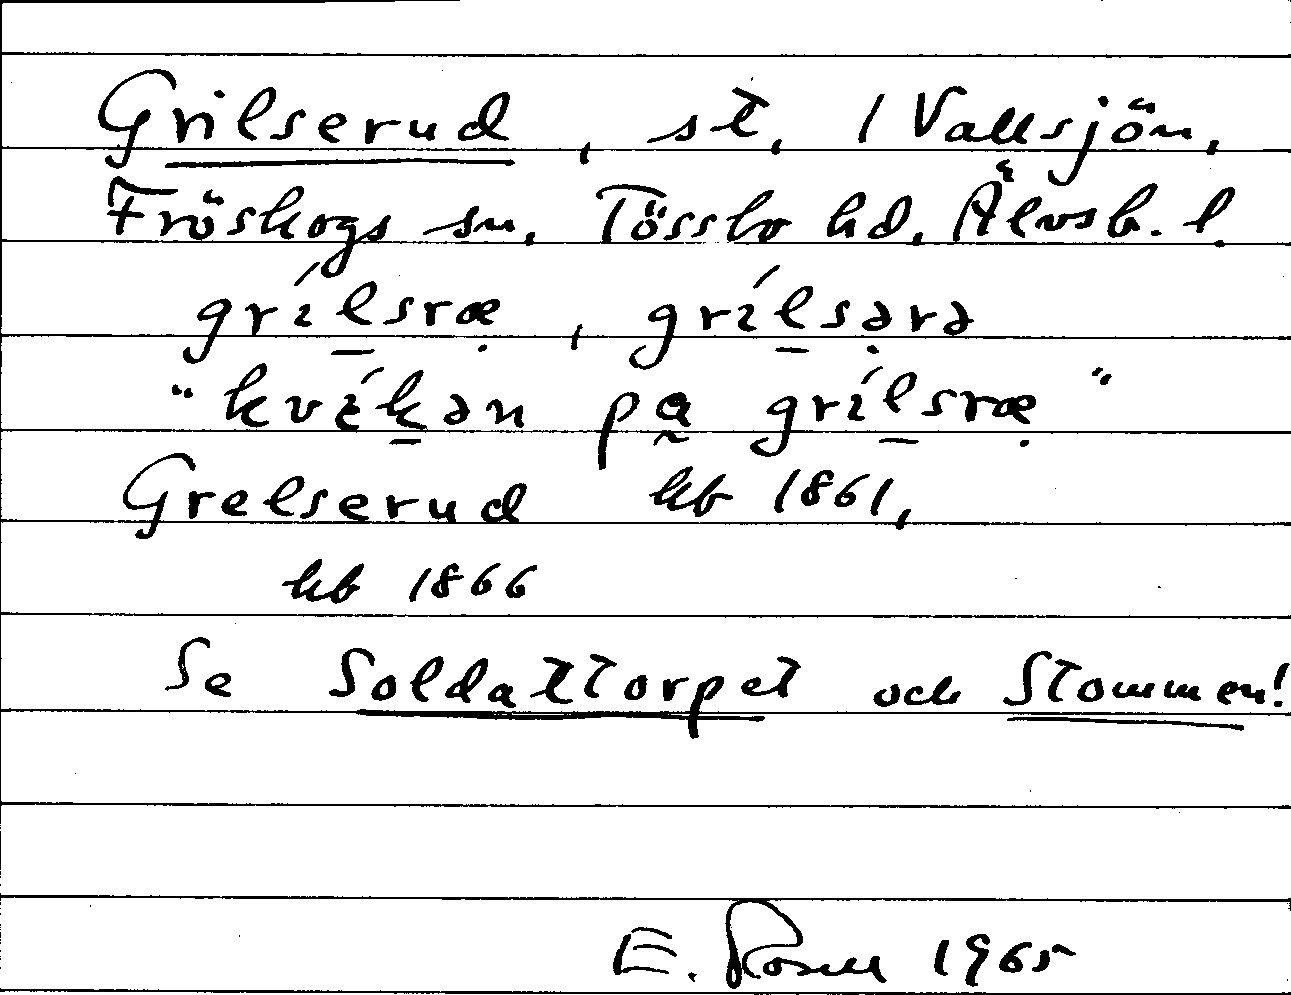 Grilserud, st, 1 Vallsjön,
Fröskogs sn, Tössbo hd, Älvsb. l.
grí̱lsræ̣, grí̱lsə̣rə
"kvíḵən pa̰ gríḻsræ̣"
Grelserud hb 1861,
hb 1866
Se Soldattorpet och Stommen!
E. Rosell 1965